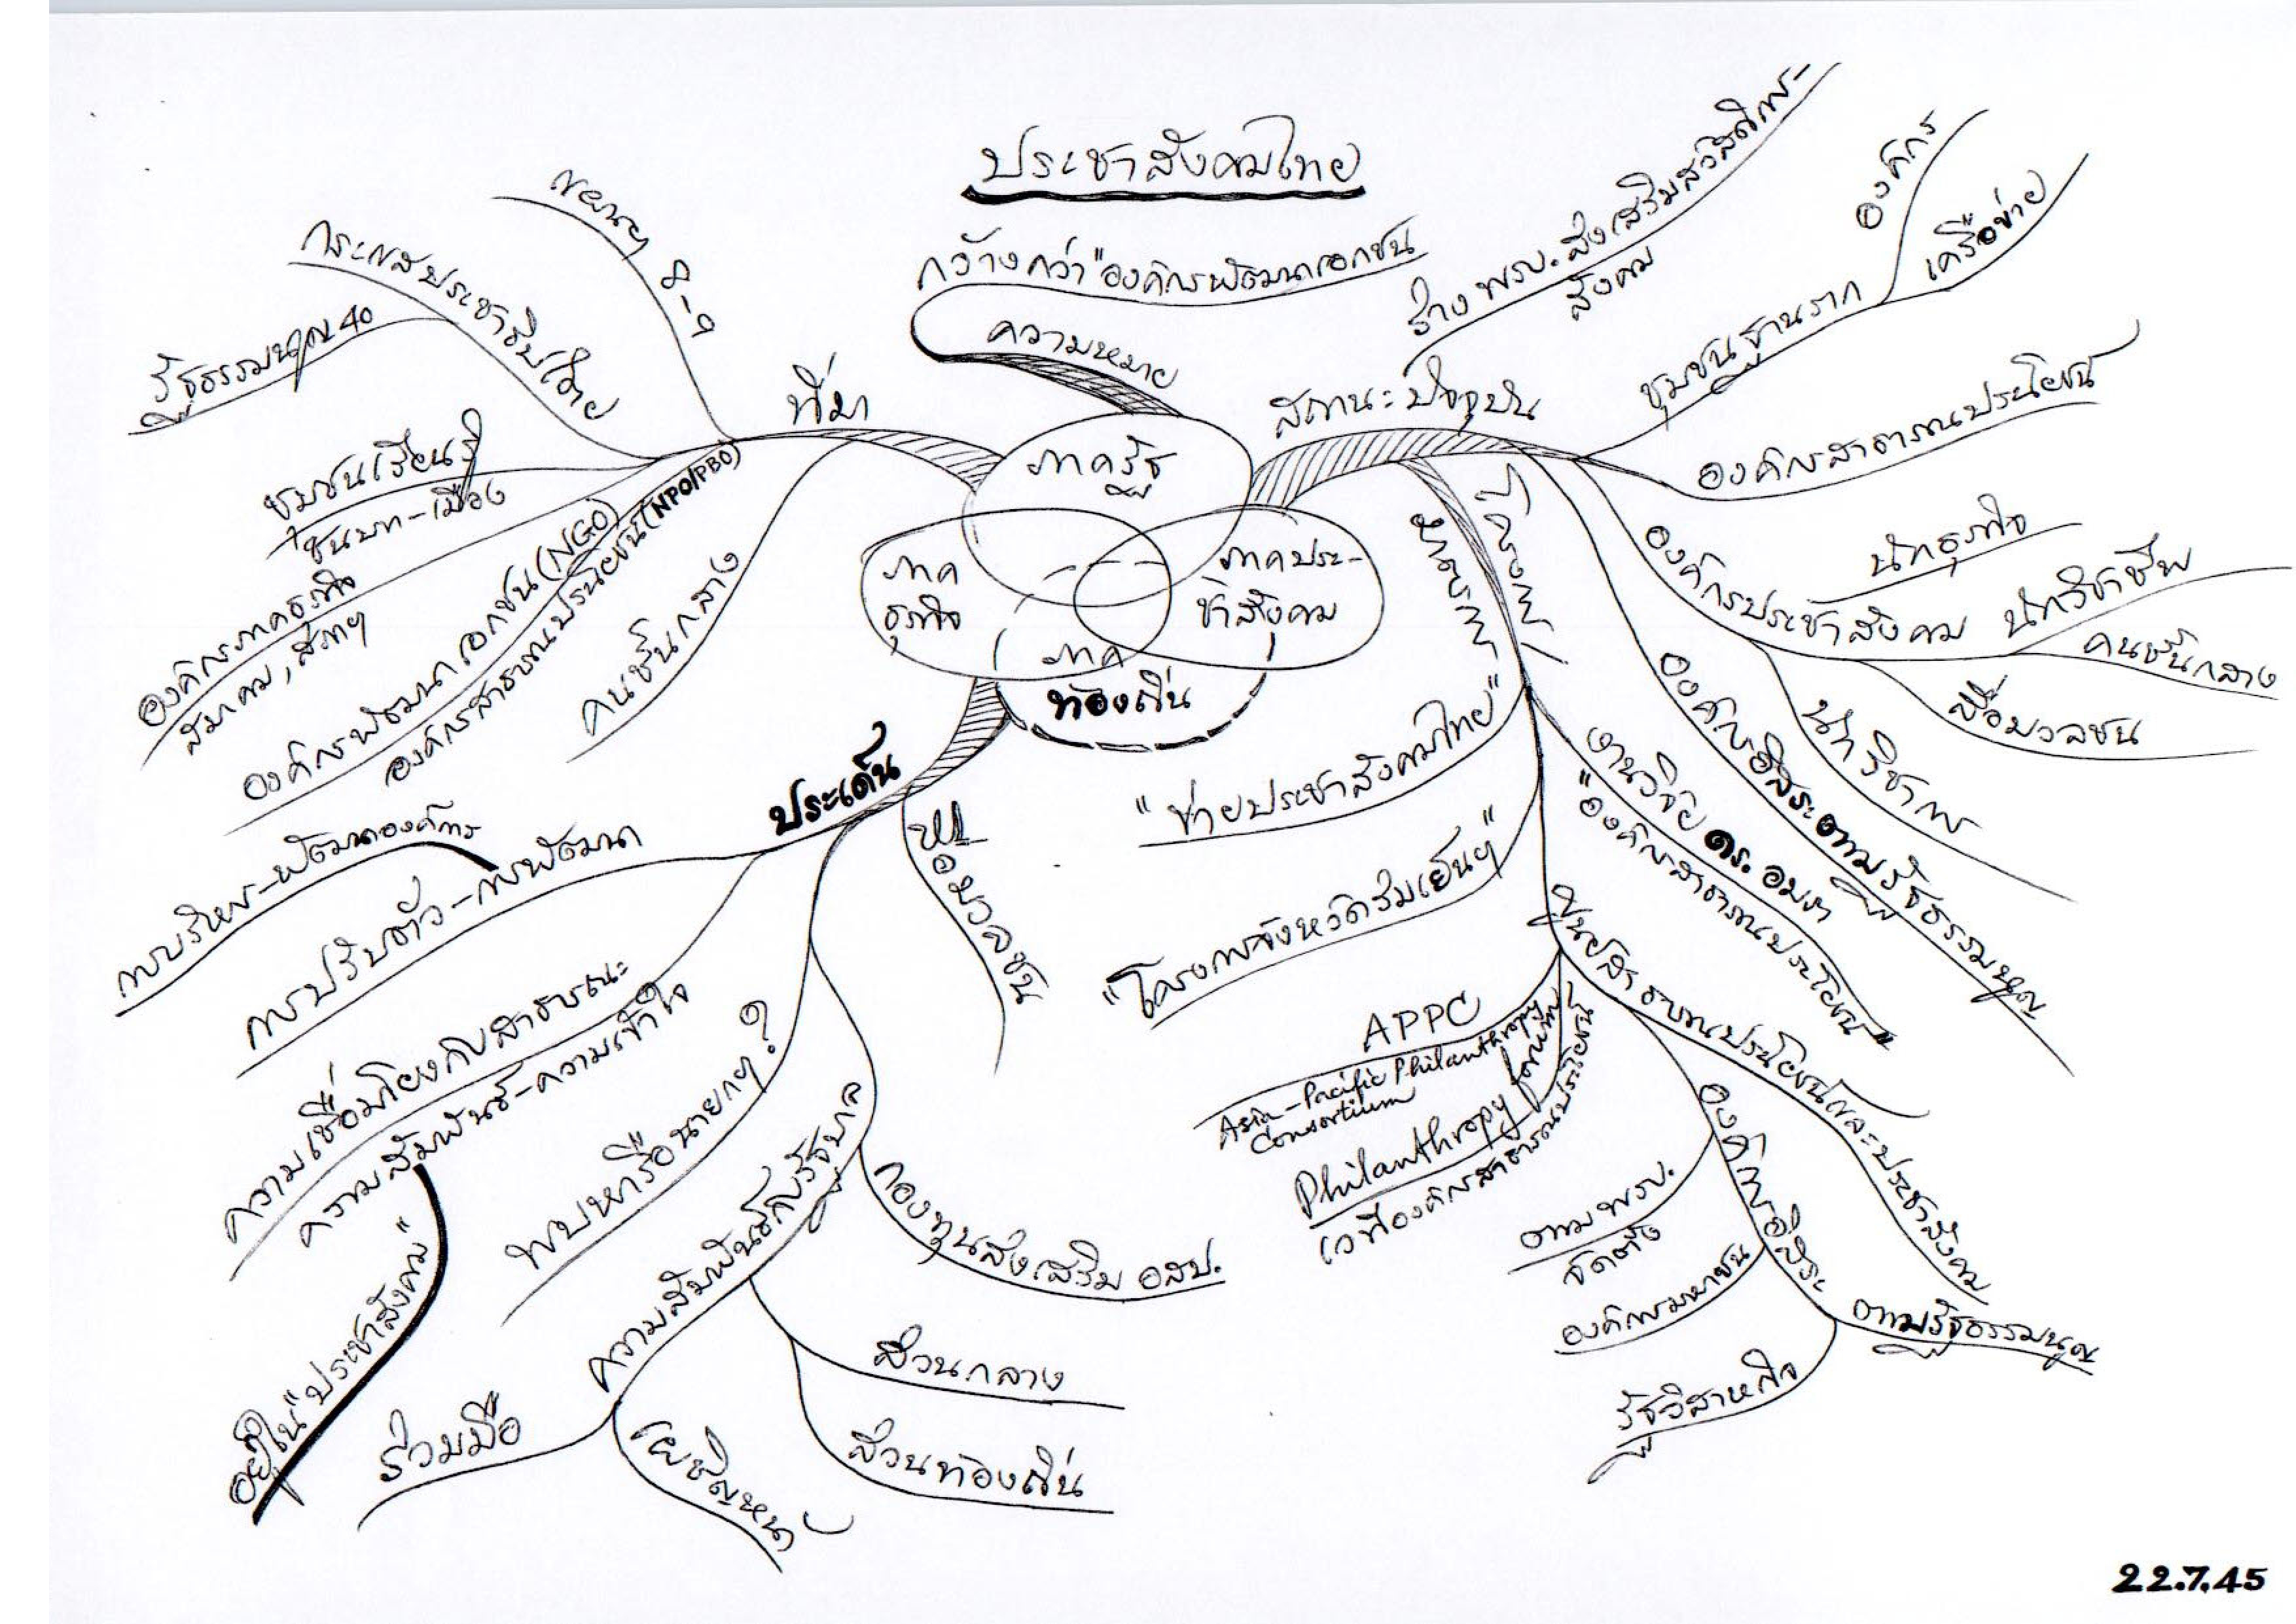 ประชาสังคมไทย
กว้างกว่า "องค์กรพัฒนาเอกชน
ความหมาย
ภาครัฐ
ภาค
ธุรกิจ
ภาคประ-
ชาสังคม
ภาค
ท้องถิ่น
ที่มา
แผนฯ 8-9
กระแสประชาธิปไตย
รัฐธรรมนูญ 40
ชุมชนเรียนรู้
ชนบท-เมือง
องค์กรภาคธุรกิจ
สมาคม, สภาฯ
องค์กรพัฒนาเอกชน (NGO)
องค์กรสาธารณประโยชน์ (NPO/PBO)
คนชั้นกลาง
สถานะปัจจุบัน
ร่าง พรบ. ส่งเสริมสวัสดิการ-
สังคม
ชุมชนฐานราก
องค์กร
เครือข่าย
องค์กรสาธารณประโยชน์
องค์กรประชาสังคม
นักธุรกิจ
นักวิชาชีพ
คนชั้นกลาง
สื่อมวลชน
นักวิชาการ
องค์กรอิสระตามรัฐธรรมนูญ
"ข่ายประชาสังคมไทย"
"โครงการจังหวัดร่มเย็นฯ"
งานวิจัย ดร. อมรา
"องค์กรสาธารณประโยชน์"
ศูนย์สาธารณประโยชน์และประชาสังคม
APPC
Asia-Pacific Philanthropy
Consortium
Philanthropy forum
เวทีองค์กรสาธารณประโยชน์
องค์การอิสระ
ตาม พรบ.
จัดตั้ง
องค์การมหาชน
รัฐวิสาหกิจ
ตามรัฐธรรมนูญ
ประเด็น
การปรับตัว-การพัฒนา
การบริหาร-พัฒนาองค์การ
ความเชื่อมโยงกับสาธารณะ
ความสัมพันธ์-ความเข้าใจ
อยู่ใน "ประชาสังคม"
พบหารือนายกฯ ?
ความสัมพันธ์กับรัฐบาล
กองทุนส่งเสริม อสป.
ส่วนกลาง
ส่วนท้องถิ่น
ร่วมมือ
22.7.45